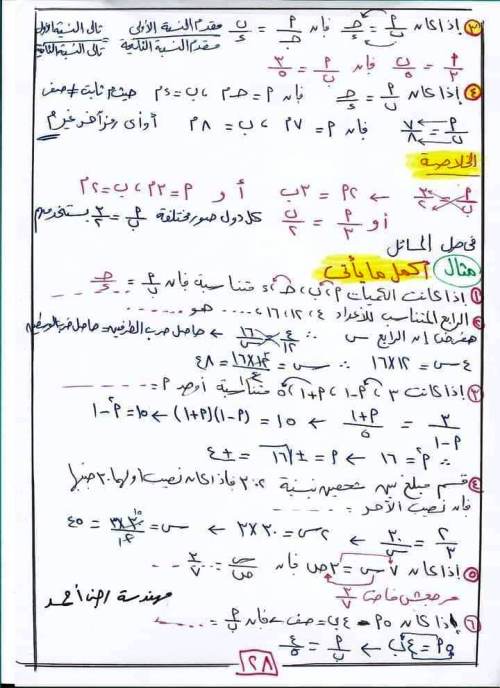 ③ إذا كان أ/ب = ج/د فإن أ/ج = ب/د مقدم النسبة الأولى / مقدم النسبة الثانية = تالى النسبة الأولى / تالى النسبة الثانية
أ/٣ = ب/٥ فإن أ/ب = ٣/٥
④ إذا كان أ/ب = ج/د فإن أ = جم ، ب = دم حيث م ثابت ≠ صفر
أ/ب = ٧/٨ فإن أ = ٧م ، ب = ٨م أو أى رمز آخر غير م
الخلاصة
أ/ب = ٣/٢ ← ٢أ = ٣ب أو أ = ٣م ، ب = ٢م
أو أ/٣ = ب/٢ كل دول صور مختلفة أ/ب = ٣/٢ بستخدمهم
فى حل المسائل
مثال أكمل ما يأتى
① إذا كانت الكميات أ ، ب ، ج ، د متناسبة فإن أ/ب = ج/د
② الرابع المتناسب للأعداد ٤ ، ١٢ ، ١٦ ، .... هو ....
بفرض إن الرابع س ∴ ٤/١٢ = ١٦/س ← حاصل ضرب الطرفين = حاصل ضرب الوسطين
٤س = ١٢×١٦ ∴ س = ١٢×١٦/٤ = ٤٨
③ إذا كانت ٣ ، أ-١ ، أ+١ ، ٥ متناسبة أوجد أ = ........
٣/أ-١ = أ+١/٥ ← ١٥ = (أ-١)(أ+١) ← ١٥ = أ²-١
∴ أ² = ١٦ ← أ = ±√١٦ = ±٤
④ قسم مبلغ بين شخصين بنسبة ٢:٣ فإذا كان نصيب أولهما ٣٠ جنيها
فإن نصيب الآخر = ........
٢/٣ = ٣٠/س ← ٢س = ٣٠×٣ ← س = ٣٠×٣/٢ = ٤٥
⑤ إذا كان ٧س = ٣ص فإن س/ص = ٣/٧
٣/٧
مهندسة
⑥ إذا كان ٥أ - ٤ب = صفر فإن أ/ب = ........
٥أ = ٤ب ← أ/ب = ٤/٥
١٢٨